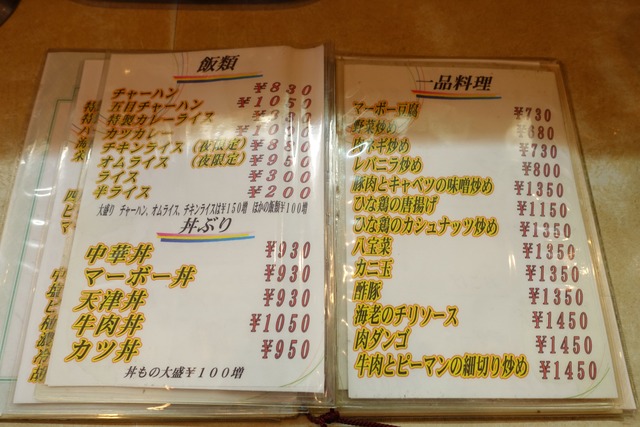 飯類
チャーハン ¥830
五目チャーハン ¥1050
特製カレーライス
カツカレー
チキンライス（夜限定） ¥880
オムライス（夜限定） ¥950
ライス ¥300
半ライス ¥200
大盛り チャーハン、オムライス、チキンライスは¥150増 ほかの飯類¥100増
丼ぶり
中華丼 ¥930
マーボー丼 ¥930
天津丼 ¥930
牛肉丼 ¥1050
カツ丼 ¥950
丼もの大盛¥100増
一品料理
マーボー豆腐 ¥730
野菜炒め ¥680
ネギ炒め ¥730
レバニラ炒め ¥800
豚肉とキャベツの味噌炒め ¥1350
ひな鶏の唐揚げ ¥1150
ひな鶏のカシュナッツ炒め ¥1350
八宝菜 ¥1350
カニ玉 ¥1350
酢豚 ¥1350
海老のチリソース ¥1450
肉ダンゴ ¥1450
牛肉とピーマンの細切り炒め ¥1450